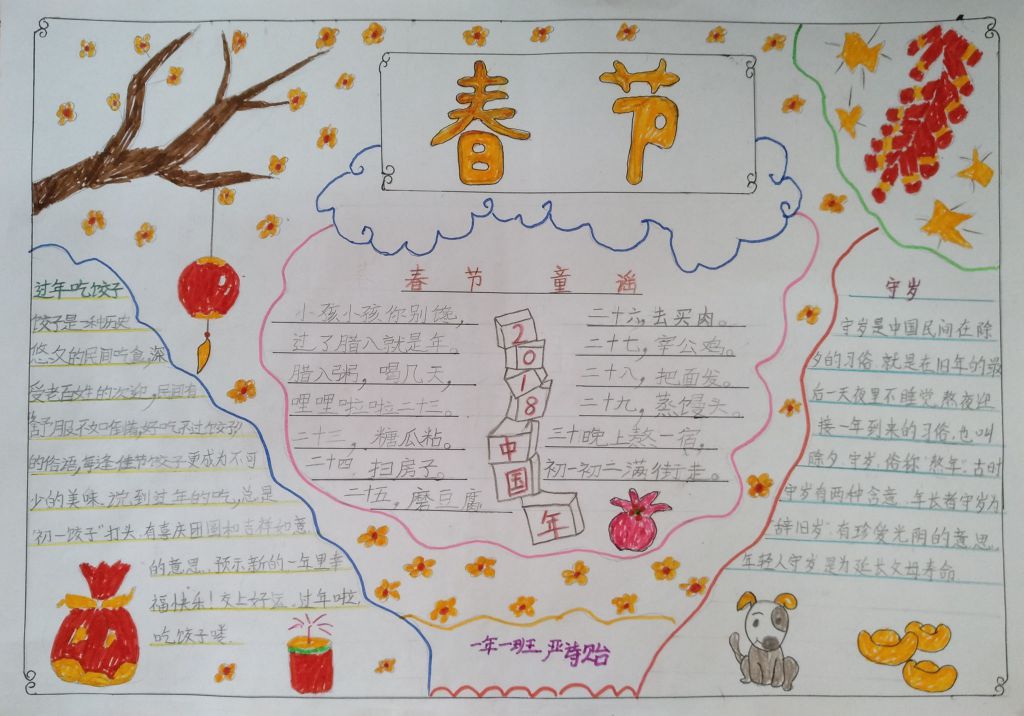 春节
过年吃饺子
饺子是一种历史
悠久的民间吃食,深
受老百姓的欢迎,民间有
舒服不如倒着,好吃不过饺子
的俗语,每逢佳节饺子更成为不可
少的美味,说到过年的吃,总是
"初一饺子"打头,有喜庆团圆和吉祥如意
的意思.预示新的一年里幸
福快乐!交上好运.过年啦,
吃饺子喽.
春节童谣
小孩小孩你别馋,
过了腊八就是年。
腊八粥,喝几天,
哩哩啦啦二十三。
二十三,糖瓜粘。
二十四 扫房子。
二十五,磨豆腐
二十六,去买肉。
二十七,宰公鸡。
二十八,把面发。
二十九,蒸馒头。
三十晚上熬一宿,
初一初二满街走。
2018中国年
守岁
守岁是中国民间在除
夕的习俗 就是在旧年的最
后一天夜里不睡觉,熬夜迎
接一年到来的习俗,也叫
除夕.守岁,俗称"熬年".古时
守岁有两种含意.年长者守岁为
"辞旧岁"有珍爱光阴的意思.
年轻人守岁是为延长父母寿命
一年一班 严诗贻